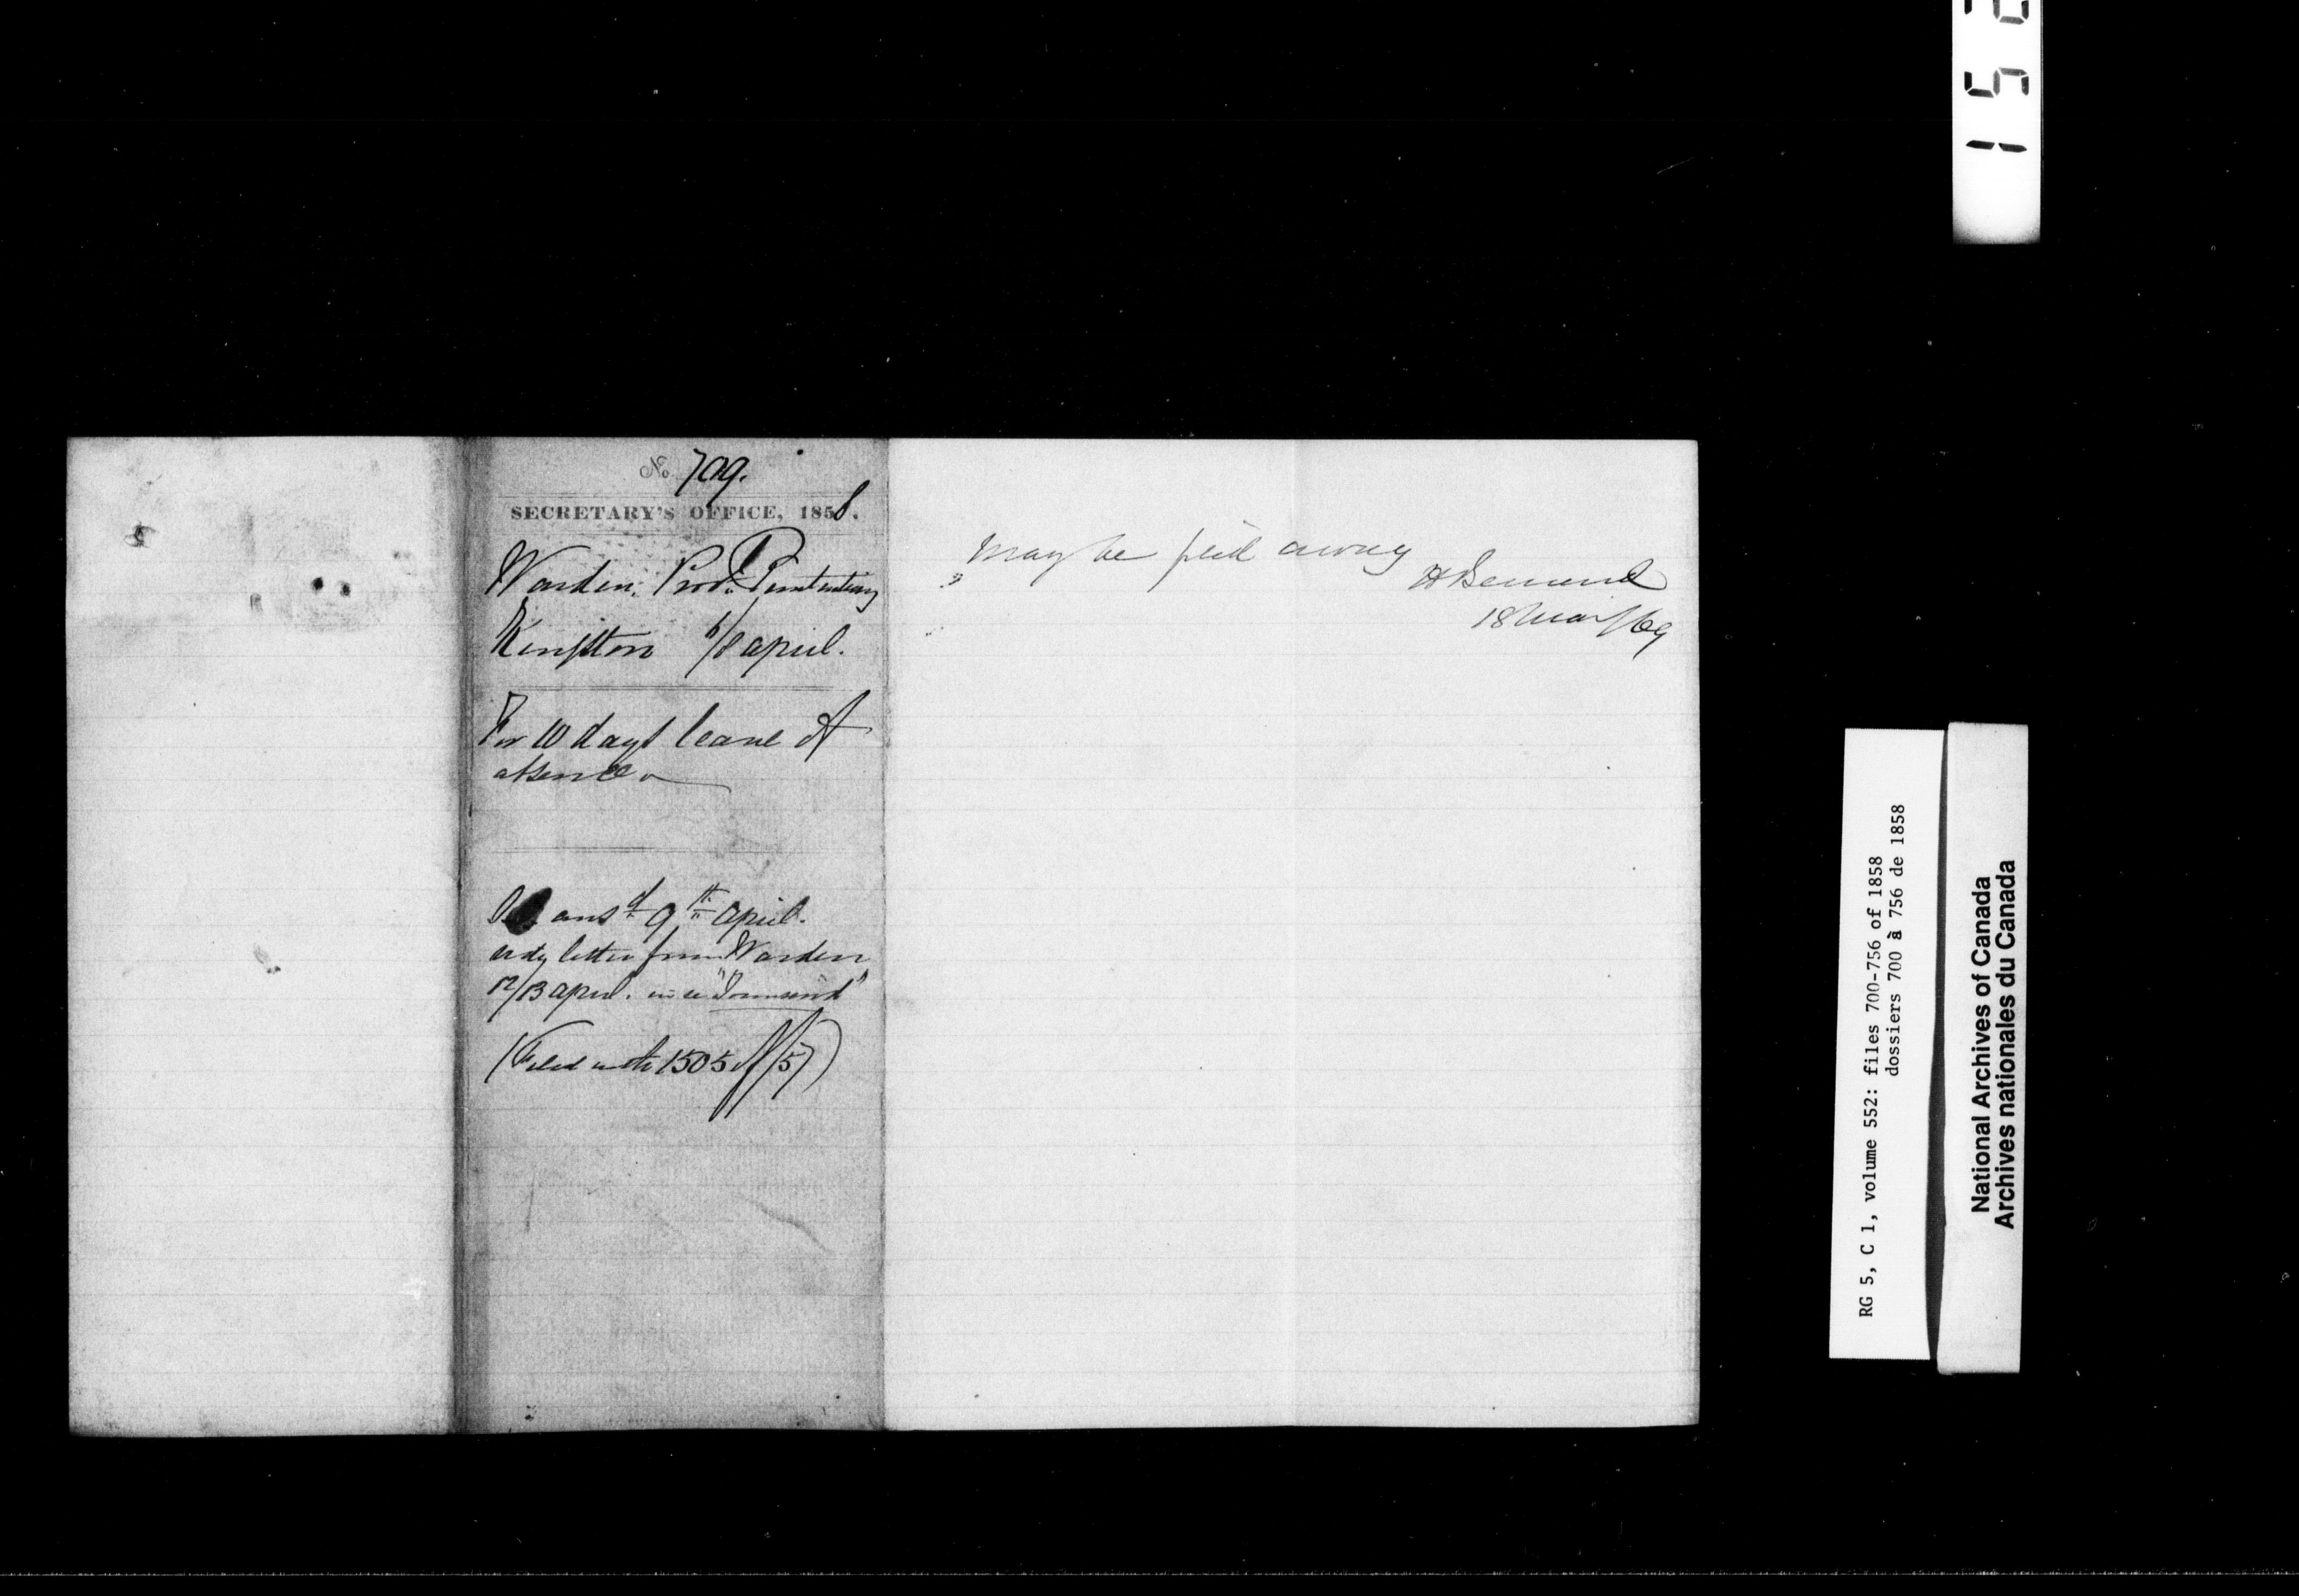 No. 709.
SECRETARY'S OFFICE, 1858.
Warden. Prov. Penitentiary
Kingston 6/8 april.
For 10 days leave of
absence.
ansd. 9th april.
letter from Warden
12/13 april. "Townsend"
(Filed with 1505 of /57)
May be put away
18 Mar/69
152
RG 5, C 1, volume 552: files 700-756 of 1858
dossiers 700 à 756 de 1858
National Archives of Canada
Archives nationales du Canada